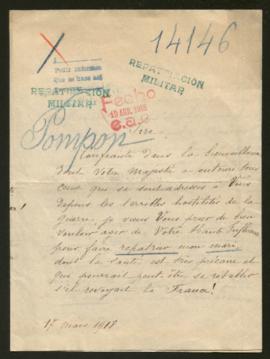 14146
Pedir informes
Que se haga así
REPATRIACIÓN
MILITAR
REPATRIACIÓN
MILITAR
Fecho
Pompon
Sire
Confiante dans la bienveillance
dont Votre Majesté a entouré tous
ceux que se sont adressés à Vous
depuis les terribles hostilités de la
guerre, je viens Vous prier de bien
vouloir user de Votre Haute Influence
pour faire repatrier mon mari
dont la santé est très précaire et
que pourrait peut être se rétablir
s'il revoyait la France!
17 mars 1918